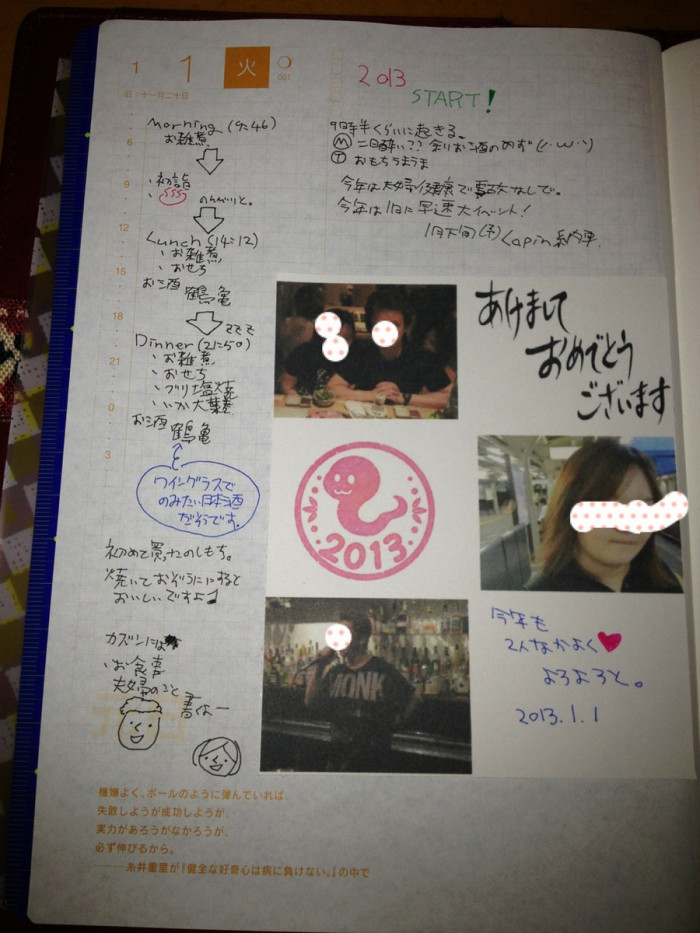 1
1
火
001
旧:十一月二十日
2013
START!
6
9
12
15
18
21
0
3
Morning (9:46)
お雑煮
・初詣
のんびりと。
Lunch (14:12)
・お雑煮
・おせち
お酒 鶴亀
zzzz
Dinner (21:50)
・お雑煮
・おせち
・ブリ塩焼
・いか大葉
お酒 鶴亀
ワイングラスで
のみたい日本酒
だそうです。
初めて買ったのしもち。
焼いておぞうににすると
おいしいですよ♪
カズンには
・お食事
夫婦のこと
書くよー
9時半くらいに起きる。
Ⓜ 二日酔い?? 余りお酒のめず(・ω・`)
Ⓣ おもちうまうま
今年は夫婦健康で事故なしで。
今年は1月に早速大イベント!
1月下旬(予) Lapin 納車
あけまして
おめでとう
ございます
2013
MONK
今年も
なかよく♥
よろよろと。
2013.1.1
機嫌よく、ボールのように弾んでいれば、
失敗しようが成功しようが、
実力があろうがなかろうが、
必ず伸びるから。
――糸井重里が『健全な好奇心は病に負けない。』の中で